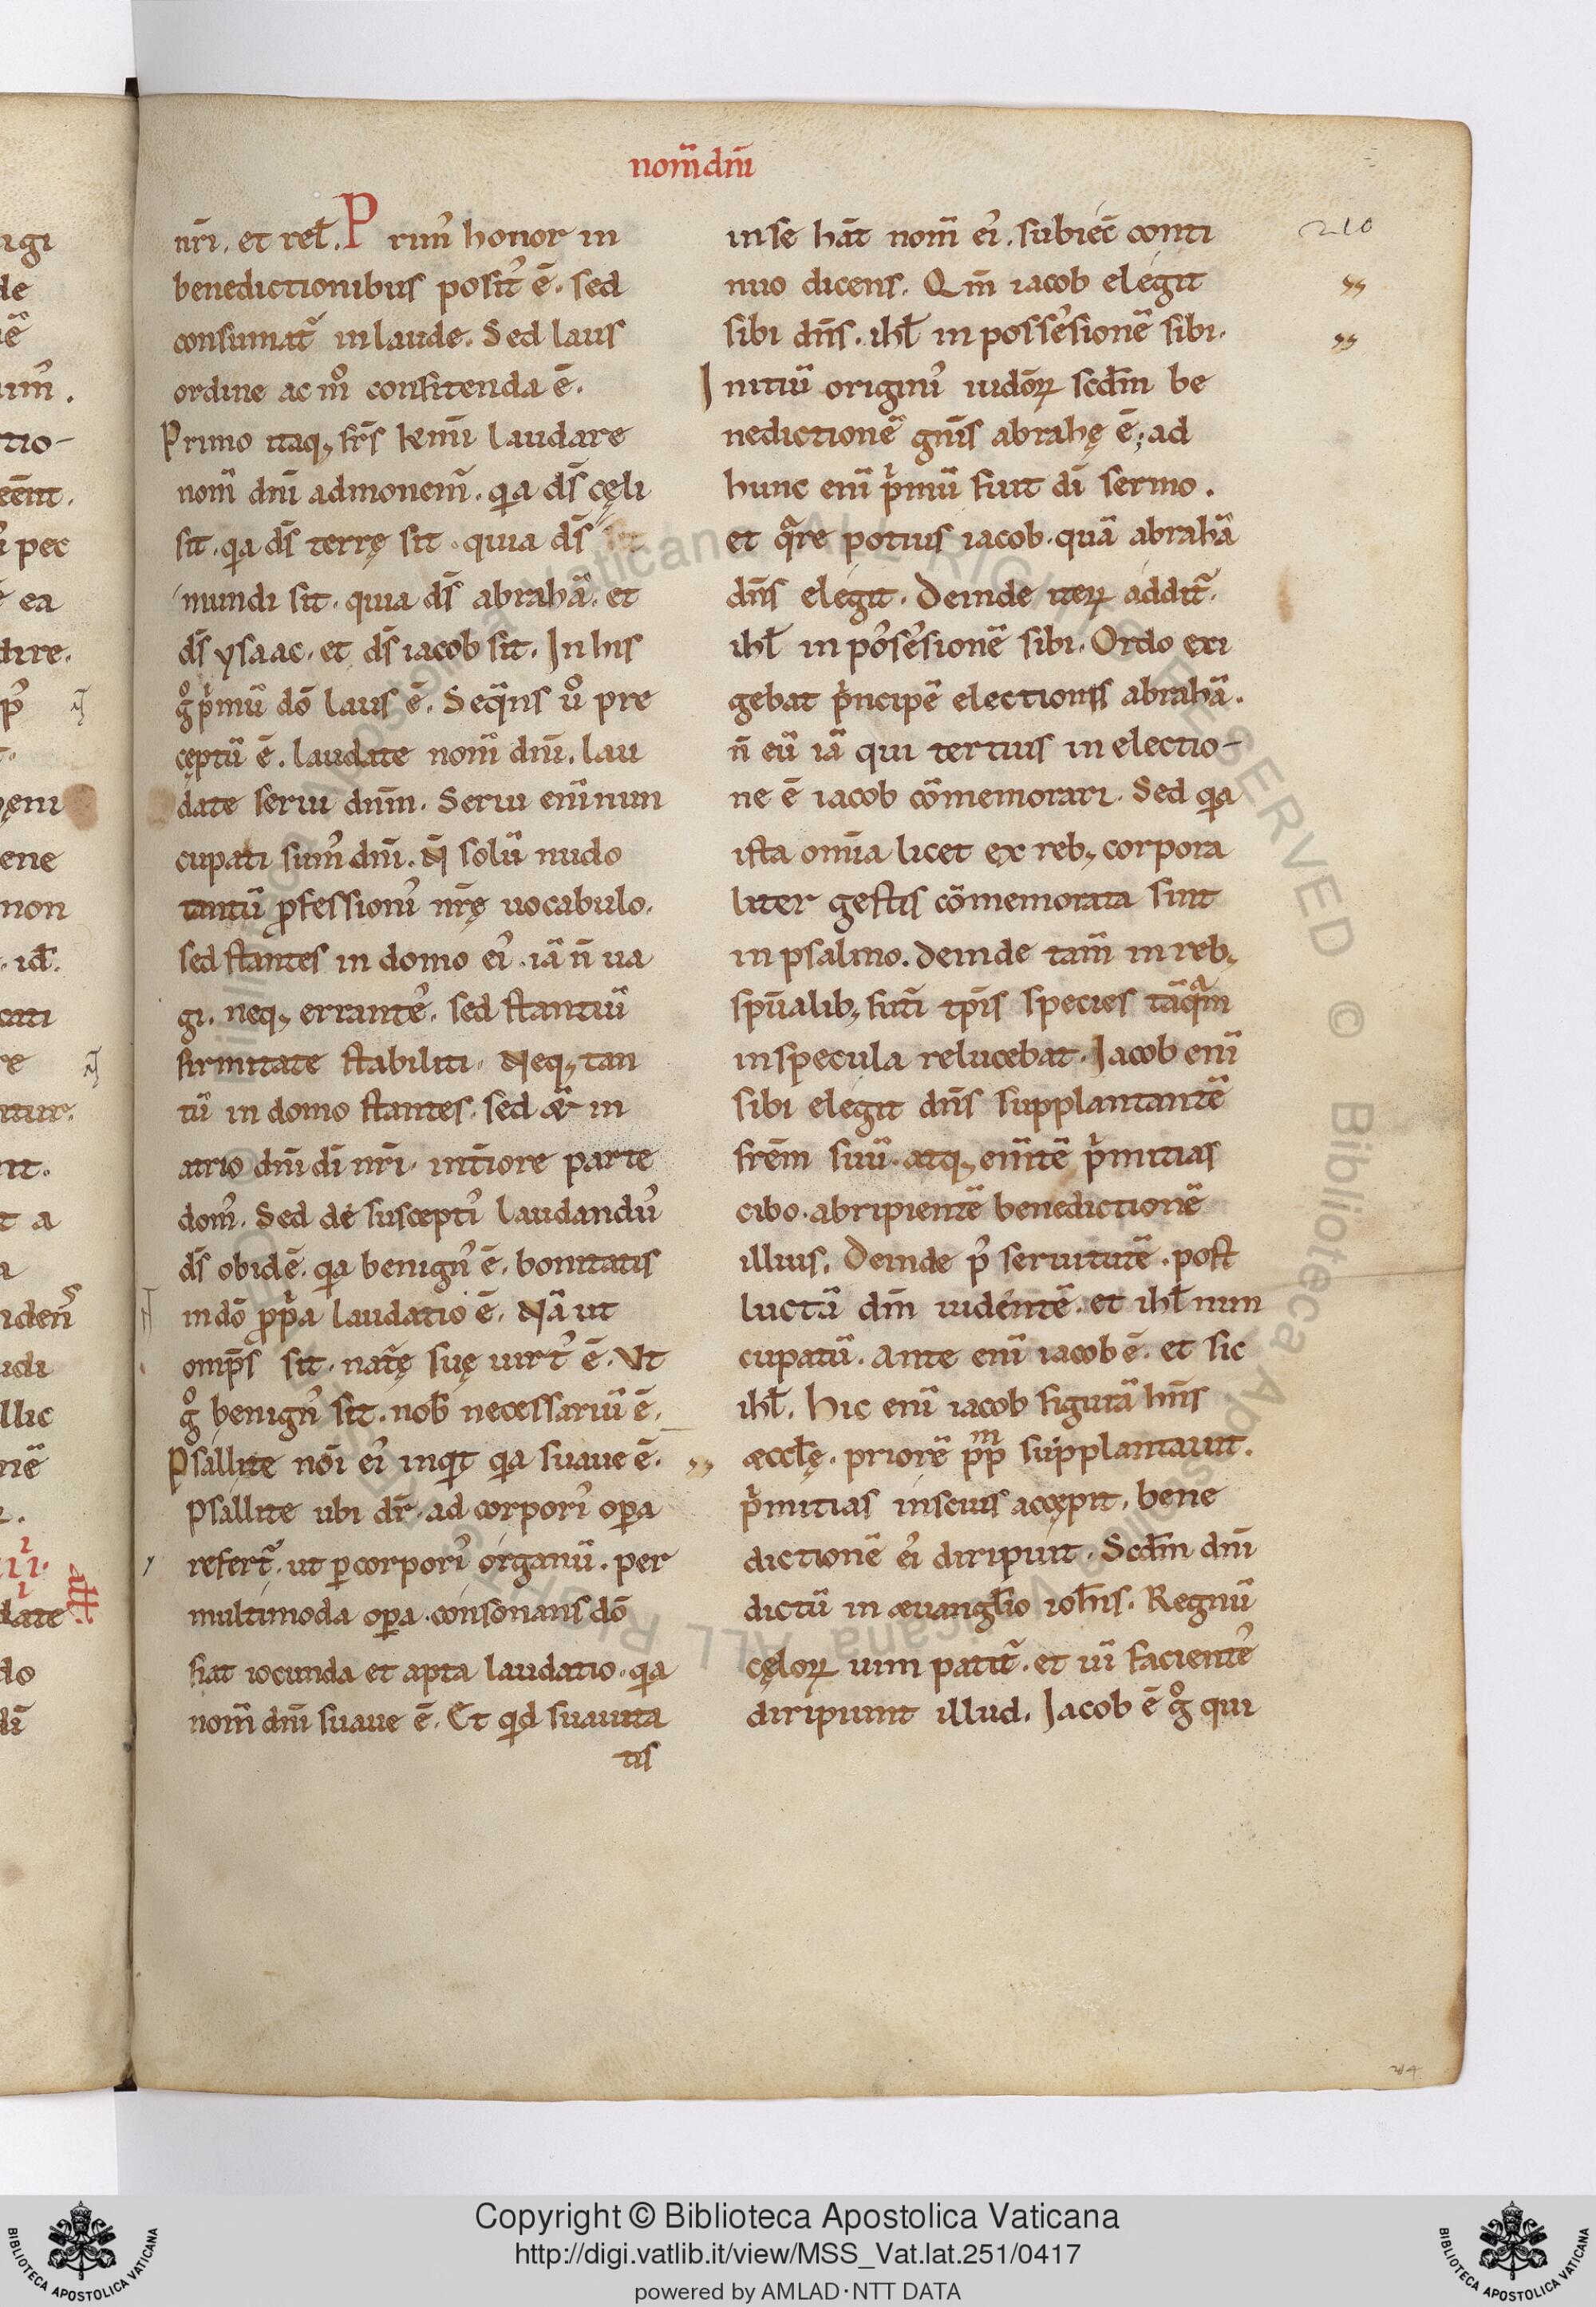 nom̄ dnī
nr̄i. et rel̄. Prim᾽ honor in
benedictionibus posit᾽ ē. sed
consumat᷑ in laude. Sed laus
ordine ac m̊ confitenda ē.
Primo itaq; frs̄ kmī laudare
nom̄ dnī admonem᷑. qͥa ds̄ cęli
sit. qͥa ds̄ terrę sit. quia ds̄
mundi sit. quia ds̄ abrahā. et
ds̄ ysaac. et ds̄ iacob sit. In his
g̊ pͥmū dō laus ē. Seqͣns ů pre
ceptū ē. laudate nom̄ dnī. lau
date serui dnm̄. Serui enī nun
cupati sum᾽ dnī. N̄ solū nudo
tantū ꝓfessioni᾽ nr̄ę uocabulo.
sed stantes in domo ei᾽. iā n̄ ua
gi. neq; errante᾽. sed stantiū
firmitate stabiliti. Neq; tan
tū in domo stantes. sed & in
atrio dnī dī nr̄i. int̄iore parte
dom᾽. Sed de suscepti᾽ laudandu᾽
ds̄ ob idē. qͥa benign᾽ ē. bonitatis
in dō ꝓpͥa laudatio ē. Nā ut
omp̄s sit. nat᷑ę suę uirt᾽ ē. Vt
g̊ benign᾽ sit. nob̄ necessariū ē.
Psallite nōi ei᾽ inqͥt qͥa suaue ē.
Psallite ubi dr̄. ad corpori᾽ oꝑa
refert᷑. ut ꝑ corpori᾽ organū. per
multimoda oꝑa. consonans dō
fiat iocunda et apta laudatio. qͥa
nom̄ dnī suaue ē. Et qͥd suauita
tis
in se hāt nom̄ ei᾽. subiec̄ conti
nuo dicens. Qm̄ iacob elegit
sibi dns̄. ihl̄ in posse᾽sionē sibi.
Initiū origini᾽ iudōꝝ scdm̄ be
nedictionē gnīs abrahę ē; ad
hunc enī pͥmū fuit dī sermo.
et qͣre potius iacob. quā abrahā
dns̄ elegit. Deinde iteꝝ addit᷑.
ihl̄ in po᾽se᾽sionē sibi. Ordo exi
gebat pͥncipē electionis abrahā.
n̄ eū iā qui tertius in electio-
ne ē iacob cōmemorari. Sed qͥa
ista omīa licet ex reb; corpora
liter gestis cōmemorata sint
in psalmo. deinde tam̄ in reb;
spūalib; futī tp̄is species tāqͣm
in specula relucebat. Iacob enī
sibi elegit dns̄ supplantantē
frēm suū. atq; em̄tē pͥmitias
cibo. abripientē benedictionē
illius. Deinde p᾽ seruitutē. post
luctā dm̄ uidentē. et ihl̄ nun
cupatū. Ante enī iacob ē. et sic
ihl̄. Hic enī iacob figurā hn̄s
æccl̄ę. priorē pp̄m supplantauit.
pͥmitias inscius accepit. bene
dictionē ei᾽ diripuit. Scdm̄ dnī
dictū in æuangl̄io ioh̄is. Regnū
cęloꝝ uim patit᷑. et uī faciente᾽
diripiunt illud. Iacob ē g̊ qui
210
Copyright © Biblioteca Apostolica Vaticana
http://digi.vatlib.it/view/MSS_Vat.lat.251/0417
powered by AMLAD·NTT DATA